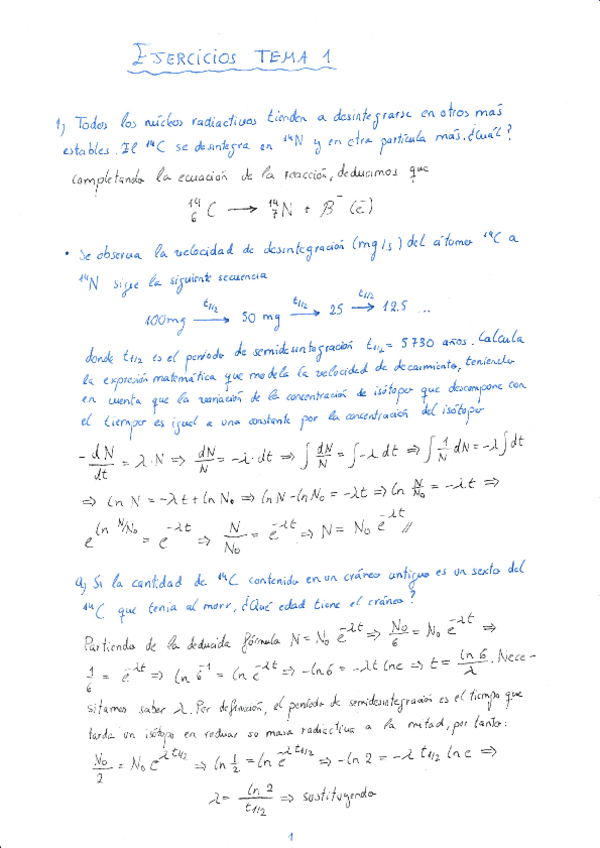 EJERCICIOS TEMA 1
1) Todos los núcleos radiactivos tienden a desintegrarse en otros más
estables. El ¹⁴C se desintegra en ¹⁴N y en otra partícula más. ¿Cuál?
Completando la ecuación de la reacción, deducimos que
¹⁴₆C ⟶ ¹⁴₇N + β⁻ (e⁻)
• Se observa la velocidad de desintegración (mg/s) del átomo ¹⁴C a
¹⁴N sigue la siguiente secuencia
100mg —t₁/₂→ 50 mg —t₁/₂→ 25 —t₁/₂→ 12,5 ...
donde t₁/₂ es el período de semidesintegración t₁/₂ = 5730 años. Calcula
la expresión matemática que modela la velocidad de decaimiento, teniendo
en cuenta que la variación de la concentración de isótopos que descompone con
el tiempo es igual a una constante por la concentración del isótopo
-dN/dt = λ·N ⇒ dN/N = -λ·dt ⇒ ∫ dN/N = ∫-λ dt ⇒ ∫ 1/N dN = -λ∫dt
⇒ ln N = -λt + ln N₀ ⇒ ln N - ln N₀ = -λt ⇒ ln N/N₀ = -λ·t ⇒
e^(ln N/N₀) = e^(-λt) ⇒ N/N₀ = e^(-λt) ⇒ N = N₀ e^(-λt) //
a) Si la cantidad de ¹⁴C contenida en un cráneo antiguo es un sexto del
¹⁴C que tenía al morir, ¿Qué edad tiene el cráneo?
Partiendo de la deducida fórmula N = N₀ e^(-λt) ⇒ N₀/6 = N₀ e^(-λt) ⇒
1/6 = e^(-λt) ⇒ ln 6⁻¹ = ln e^(-λt) ⇒ -ln6 = -λt lne ⇒ t = ln 6/λ. Nece-
sitamos saber λ. Por definición, el período de semidesintegración es el tiempo que
tarda un isótopo en reducir su masa radiactiva a la mitad, por tanto:
N₀/2 = N₀ e^(-λt₁/₂) ⇒ ln 1/2 = ln e^(-λt₁/₂) ⇒ -ln 2 = -λ t₁/₂ ln e ⇒
λ = ln 2/t₁/₂ ⇒ sustituyendo
1